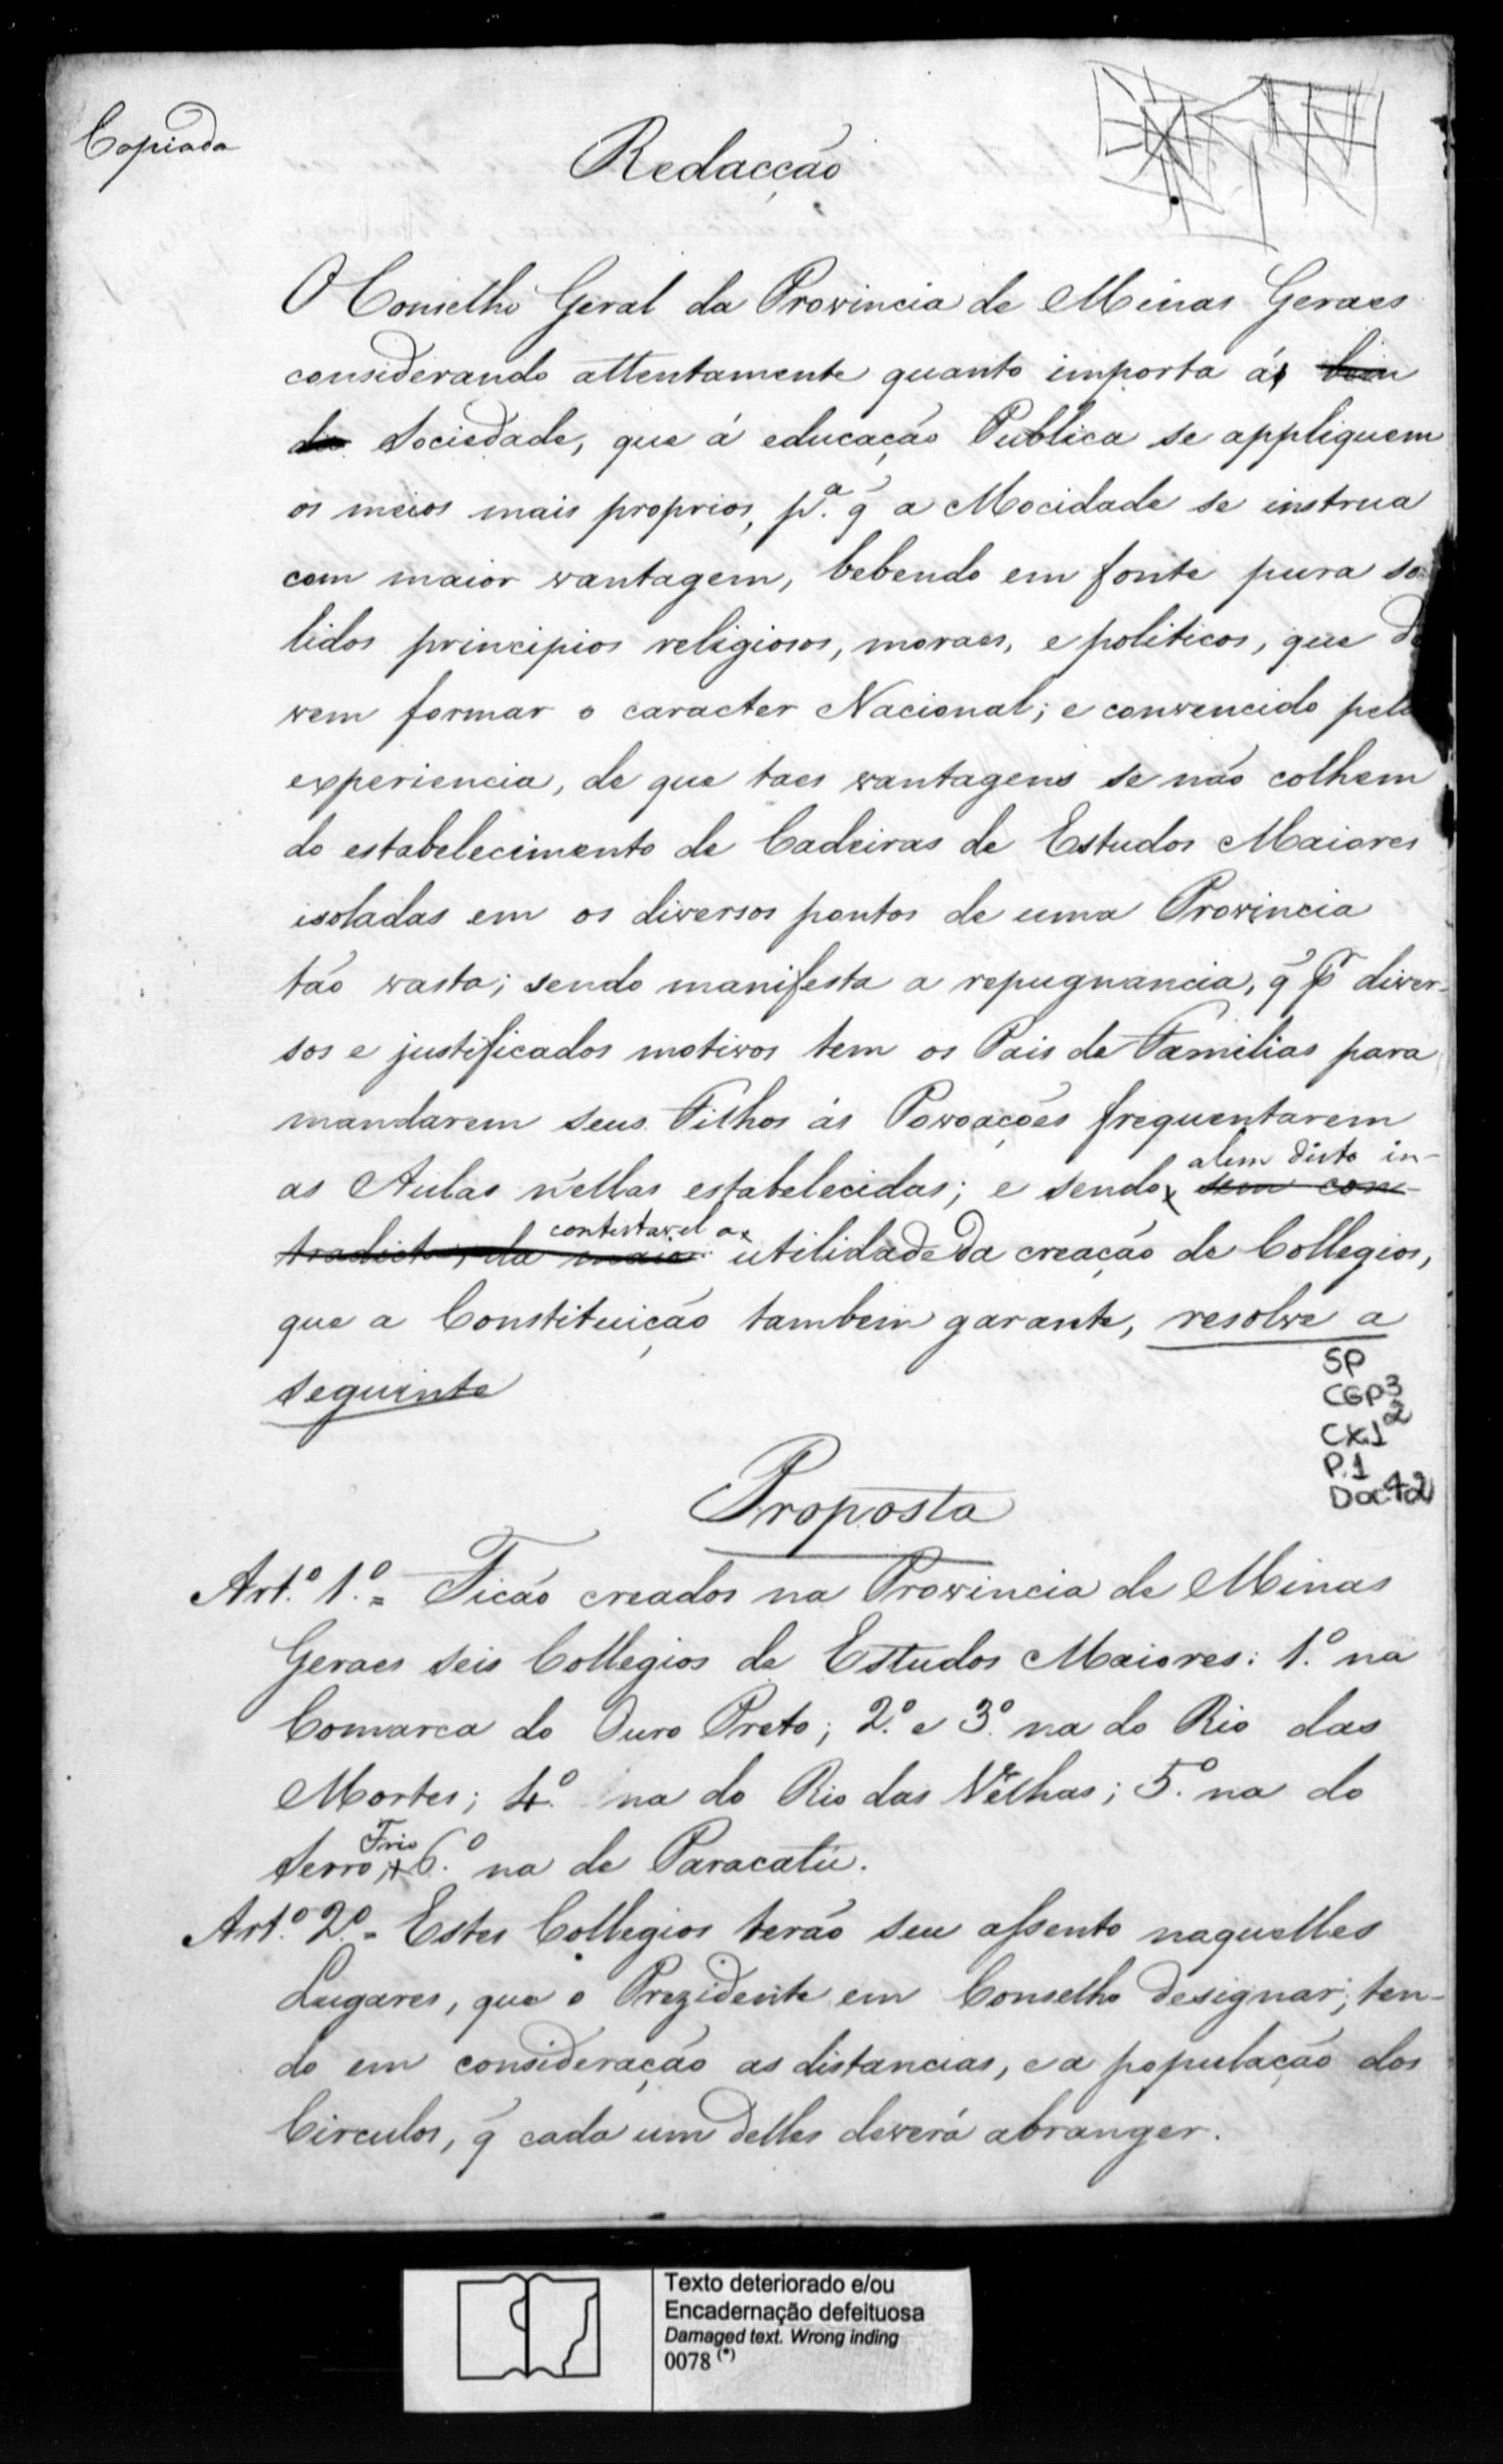 Copiada
Redacção
O Conselho Geral da Provincia de Minas Geraes
considerando attentamente quanto importa á bem
da Sociedade, que á educação Publica se appliquem
os meios mais proprios, pª. q̃ a Mocidade se instrua
com maior vantagem, bebendo em fonte pura so-
lidos principios religiosos, moraes, e politicos, que de
vem formar o caracter Nacional; e convencido pela
experiencia, de que taes vantagens se não colhem
do estabelecimento de Cadeiras de Estudos Maiores
isoladas em os diversos pontos de uma Provincia
tão vasta; sendo manifesta a repugnancia, q̃ pʳ diver-
sos e justificados motivos tem os Pais de Familias para
mandarem seus Filhos ás Povoações frequentarem
alem disto in-
as Aulas n'ellas estabelecidas; e sendo sem con-
contestavel a
tradicta, da maior utilidade da creação de Collegios,
que a Constituição tambem garante, resolve a
seguinte
SP
CGP3
CX.1 2
P.1
Doc 42
Proposta
Art.º 1.º = Ficão creados na Provincia de Minas
Geraes seis Collegios de Estudos Maiores: 1.º na
Comarca do Ouro Preto; 2.º e 3.º na do Rio das
Mortes; 4.º na do Rio das Velhas; 5.º na do
Frio
Serro, + 6.º na de Paracatú.
Art.º 2.º = Estes Collegios terão seu assento naquelles
Lugares, que o Prezidente em Conselho designar; ten-
do em consideração as distancias, e a população dos
Circulos, q̃ cada um delles deverá abranger.
Texto deteriorado e/ou
Encadernação defeituosa
Damaged text. Wrong inding
0078 (*)